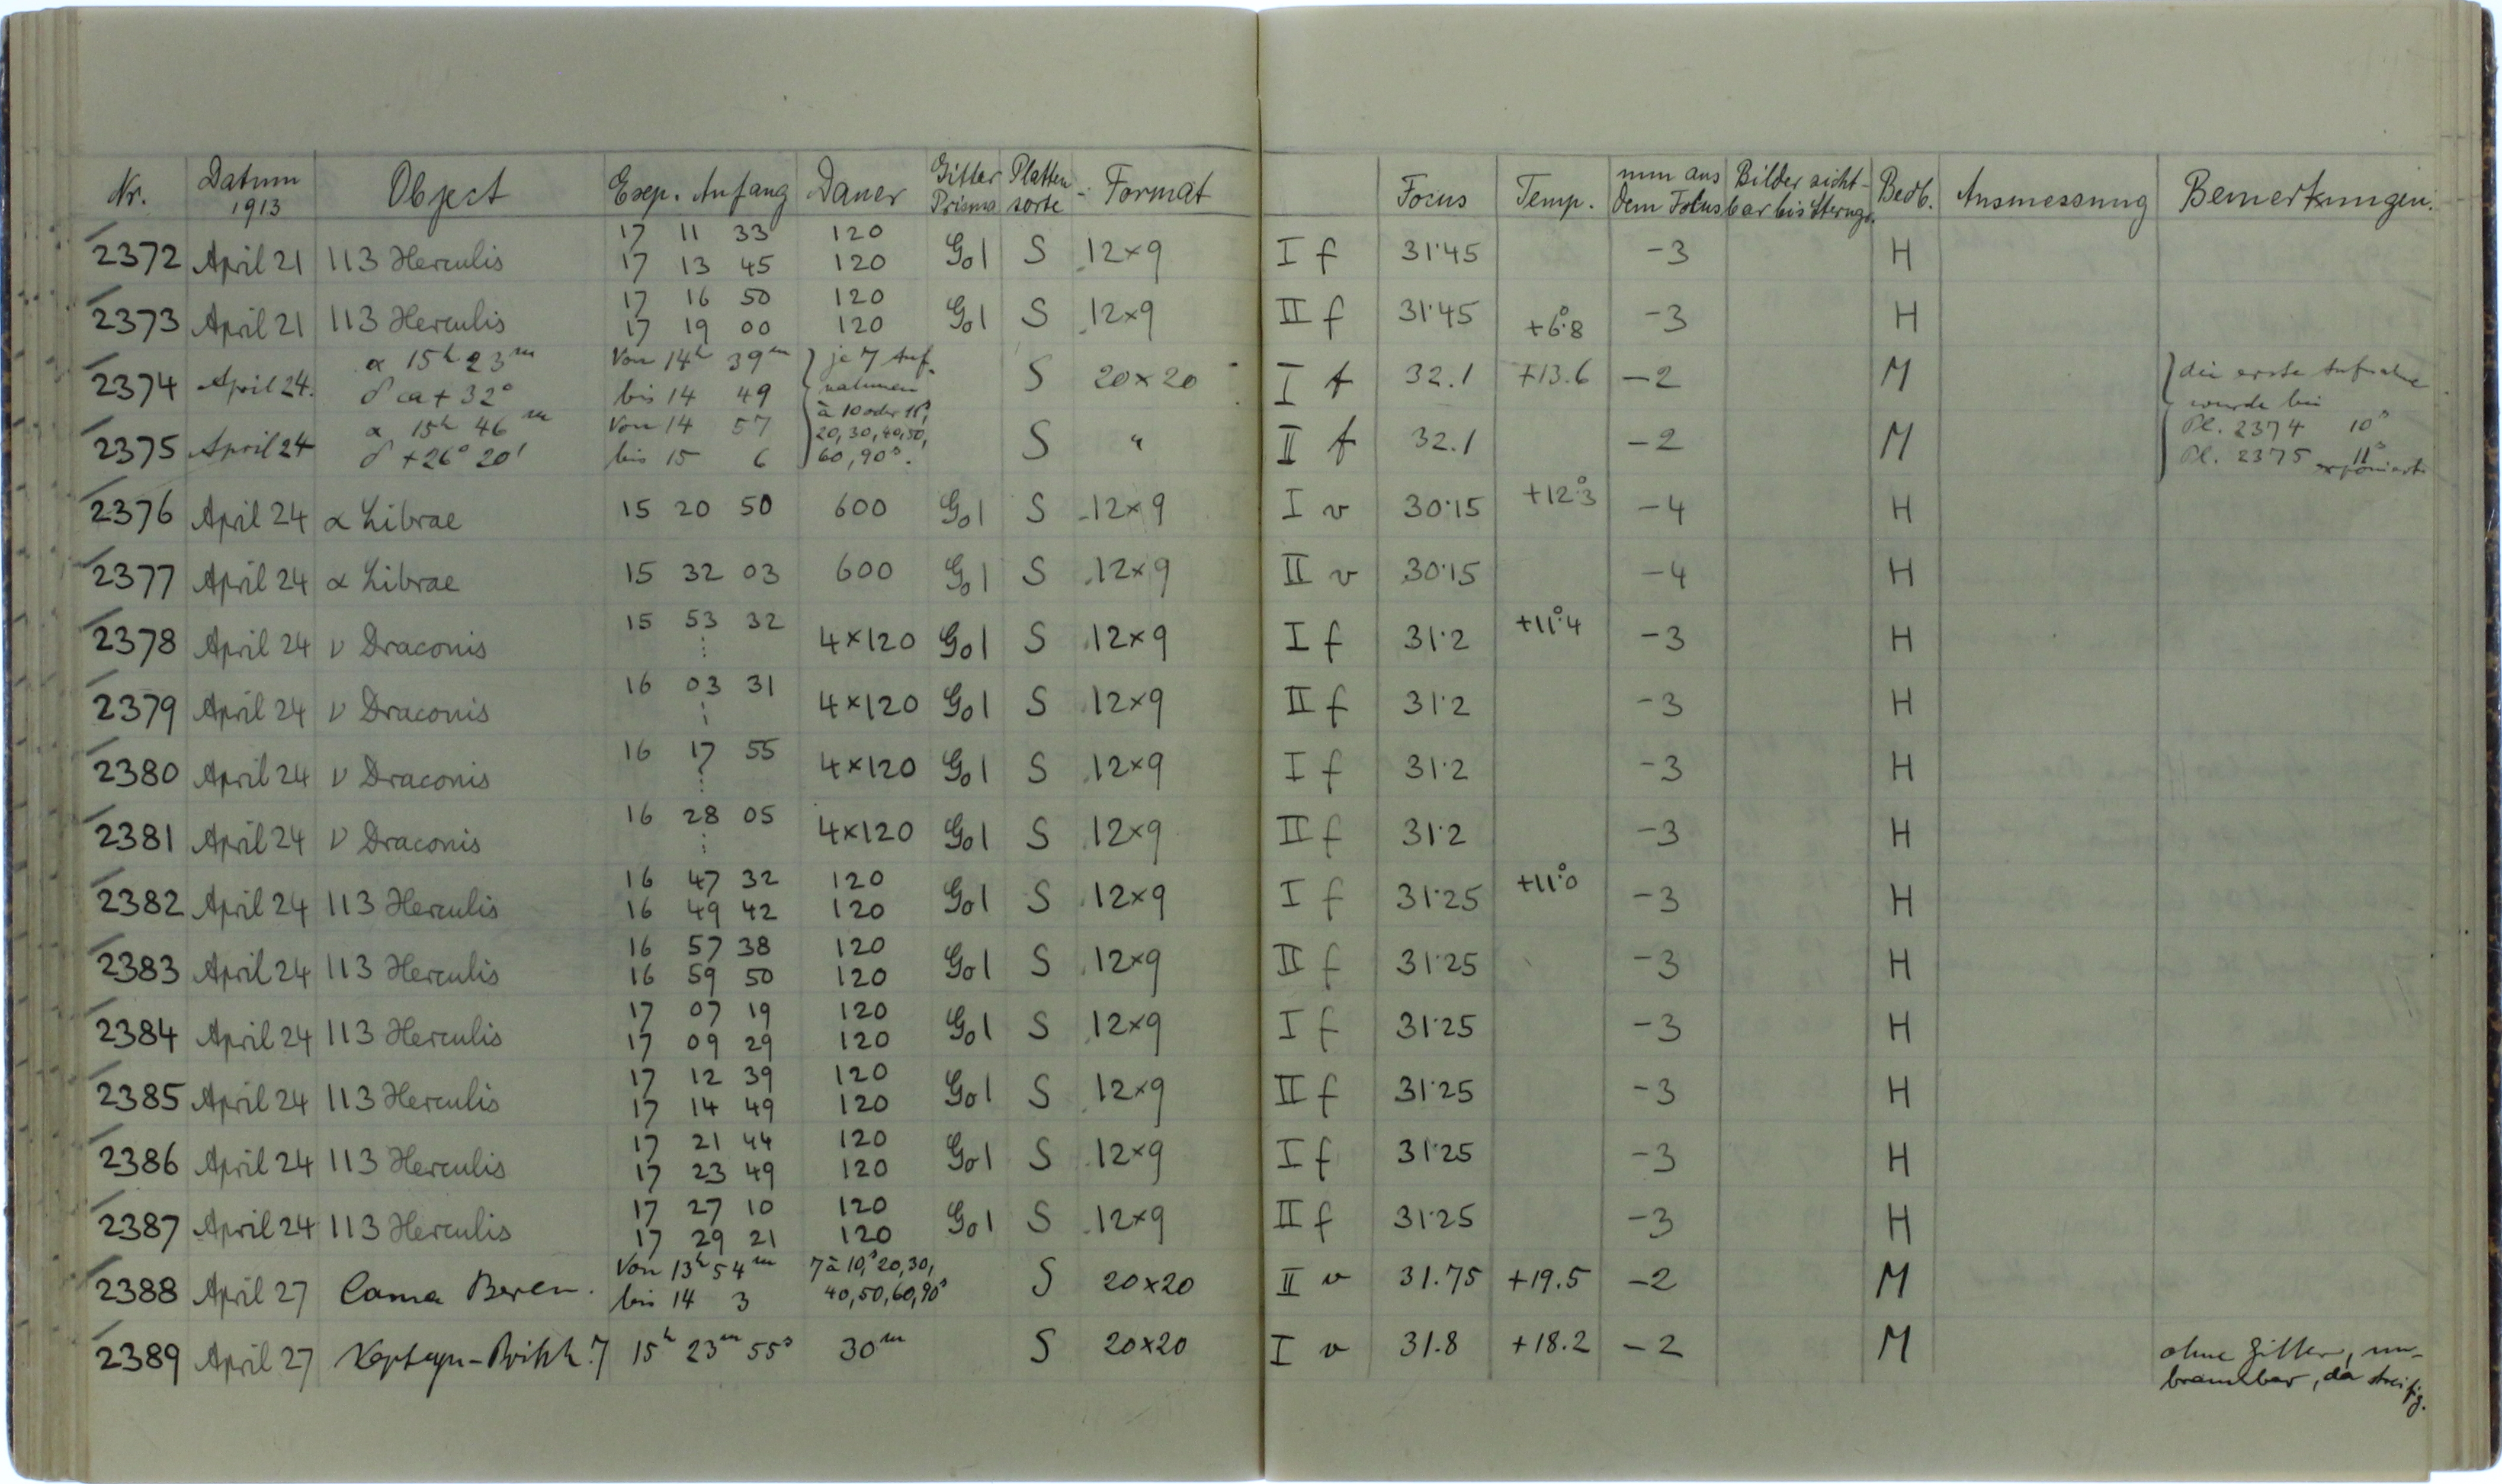 Nr. Datum 1913 Object Exp. Anfang Dauer Gitter Prisma Platten sorte Format Focus Temp. mm aus dem Fokus Bilder sicht- bar bis Sterngr. Beob. Ausmessung Bemerkungen.
2372 April 21 113 Herculis 17 11 33 120 G01 S 12×9 I f 31·45 -3 H
17 13 45 120
2373 April 21 113 Herculis 17 16 50 120 G01 S 12×9 II f 31·45 +6°.8 -3 H
17 19 00 120
2374 April 24. α 15h 23m Von 14h 39m je 7 Auf- S 20×20 I f 32.1 +13.6 -2 M die erste Aufnahme
δ ca + 32° bis 14 49 nahmen wurde bei
2375 April 24 α 15h 46m Von 14 57 à 10 oder 11s, S " II f 32.1 -2 M Pl. 2374 10s
δ +26° 20' bis 15 6 20, 30, 40, 50, 60, 90s. Pl. 2375 11s exponiert
2376 April 24 α Librae 15 20 50 600 G01 S 12×9 I v 30·15 +12°.3 -4 H
2377 April 24 α Librae 15 32 03 600 G01 S 12×9 II v 30·15 -4 H
2378 April 24 ν Draconis 15 53 32 ⋮ 4×120 G01 S 12×9 I f 31·2 +11°.4 -3 H
2379 April 24 ν Draconis 16 03 31 ⋮ 4×120 G01 S 12×9 II f 31·2 -3 H
2380 April 24 ν Draconis 16 17 55 ⋮ 4×120 G01 S 12×9 I f 31·2 -3 H
2381 April 24 ν Draconis 16 28 05 ⋮ 4×120 G01 S 12×9 II f 31·2 -3 H
2382 April 24 113 Herculis 16 47 32 120 G01 S 12×9 I f 31·25 +11°.0 -3 H
16 49 42 120
2383 April 24 113 Herculis 16 57 38 120 G01 S 12×9 II f 31·25 -3 H
16 59 50 120
2384 April 24 113 Herculis 17 07 19 120 G01 S 12×9 I f 31·25 -3 H
17 09 29 120
2385 April 24 113 Herculis 17 12 39 120 G01 S 12×9 II f 31·25 -3 H
17 14 49 120
2386 April 24 113 Herculis 17 21 44 120 G01 S 12×9 I f 31·25 -3 H
17 23 49 120
2387 April 24 113 Herculis 17 27 10 120 G01 S 12×9 II f 31·25 -3 H
17 29 21 120
2388 April 27 Coma Beren. Von 13h 54m 7 à 10s, 20, 30, S 20×20 II v 31.75 +19.5 -2 M
bis 14 3 40, 50, 60, 90s
2389 April 27 15h 23m 55s 30m S 20×20 I v 31.8 +18.2 -2 M ohne Gitter, un-
brauchbar, da streifig.